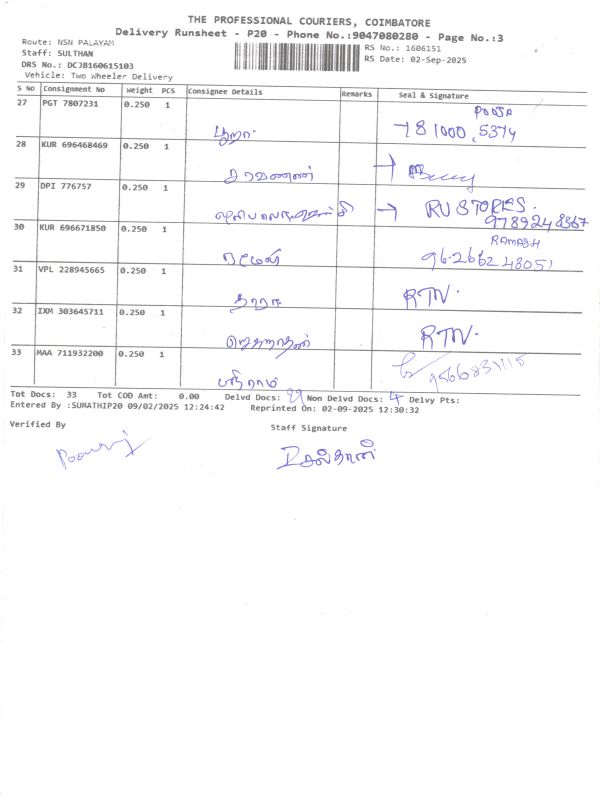 THE PROFESSIONAL COURIERS, COIMBATORE
Delivery Runsheet - P20 - Phone No.:9047080280 - Page No.:3
Route: NSN PALAYAM
RS No.: 1606151
Staff: SULTHAN
RS Date: 02-Sep-2025
DRS No.: DCJB160615103
Vehicle: Two Wheeler Delivery
S No Consignment No Weight PCS Consignee Details Remarks Seal & Signature
27 PGT 7807231 0.250 1 POOJA
பூஜா
28 KUR 696468469 0.250 1
சரவணன்
29 DPI 776757 0.250 1 RU STORIES.
9789248367
30 KUR 696671850 0.250 1 RAMESH
ரமேஷ்
31 VPL 228945665 0.250 1 RTN.
தாரா
32 IXM 303645711 0.250 1 RTN.
ஜெகநாதன்
33 MAA 711932200 0.250 1
ஸ்ரீராம்
Tot Docs: 33 Tot COD Amt: 0.00 Delvd Docs: 29 Non Delvd Docs: 4 Delvy Pts:
Entered By :SUMATHIP20 09/02/2025 12:24:42 Reprinted On: 02-09-2025 12:30:32
Verified By Staff Signature
சுல்தான்